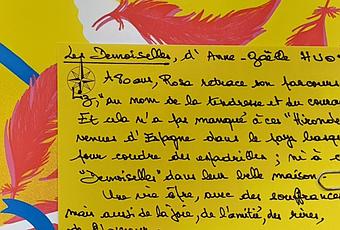 Les Demoiselles, d'Anne-Gaëlle HUO
A 80 ans, Rosa retrace son parcours
"au nom de la tendresse et du coura
Et cela n'a pas manqué à ces "Hironde
venues d'Espagne dans le pays basqu
pour coudre des espadrilles ; ni à c
"Demoiselles" dans leur belle maison
Une vie âpre, avec des souffrances
mais aussi de la joie, de l'amitié, des rires,